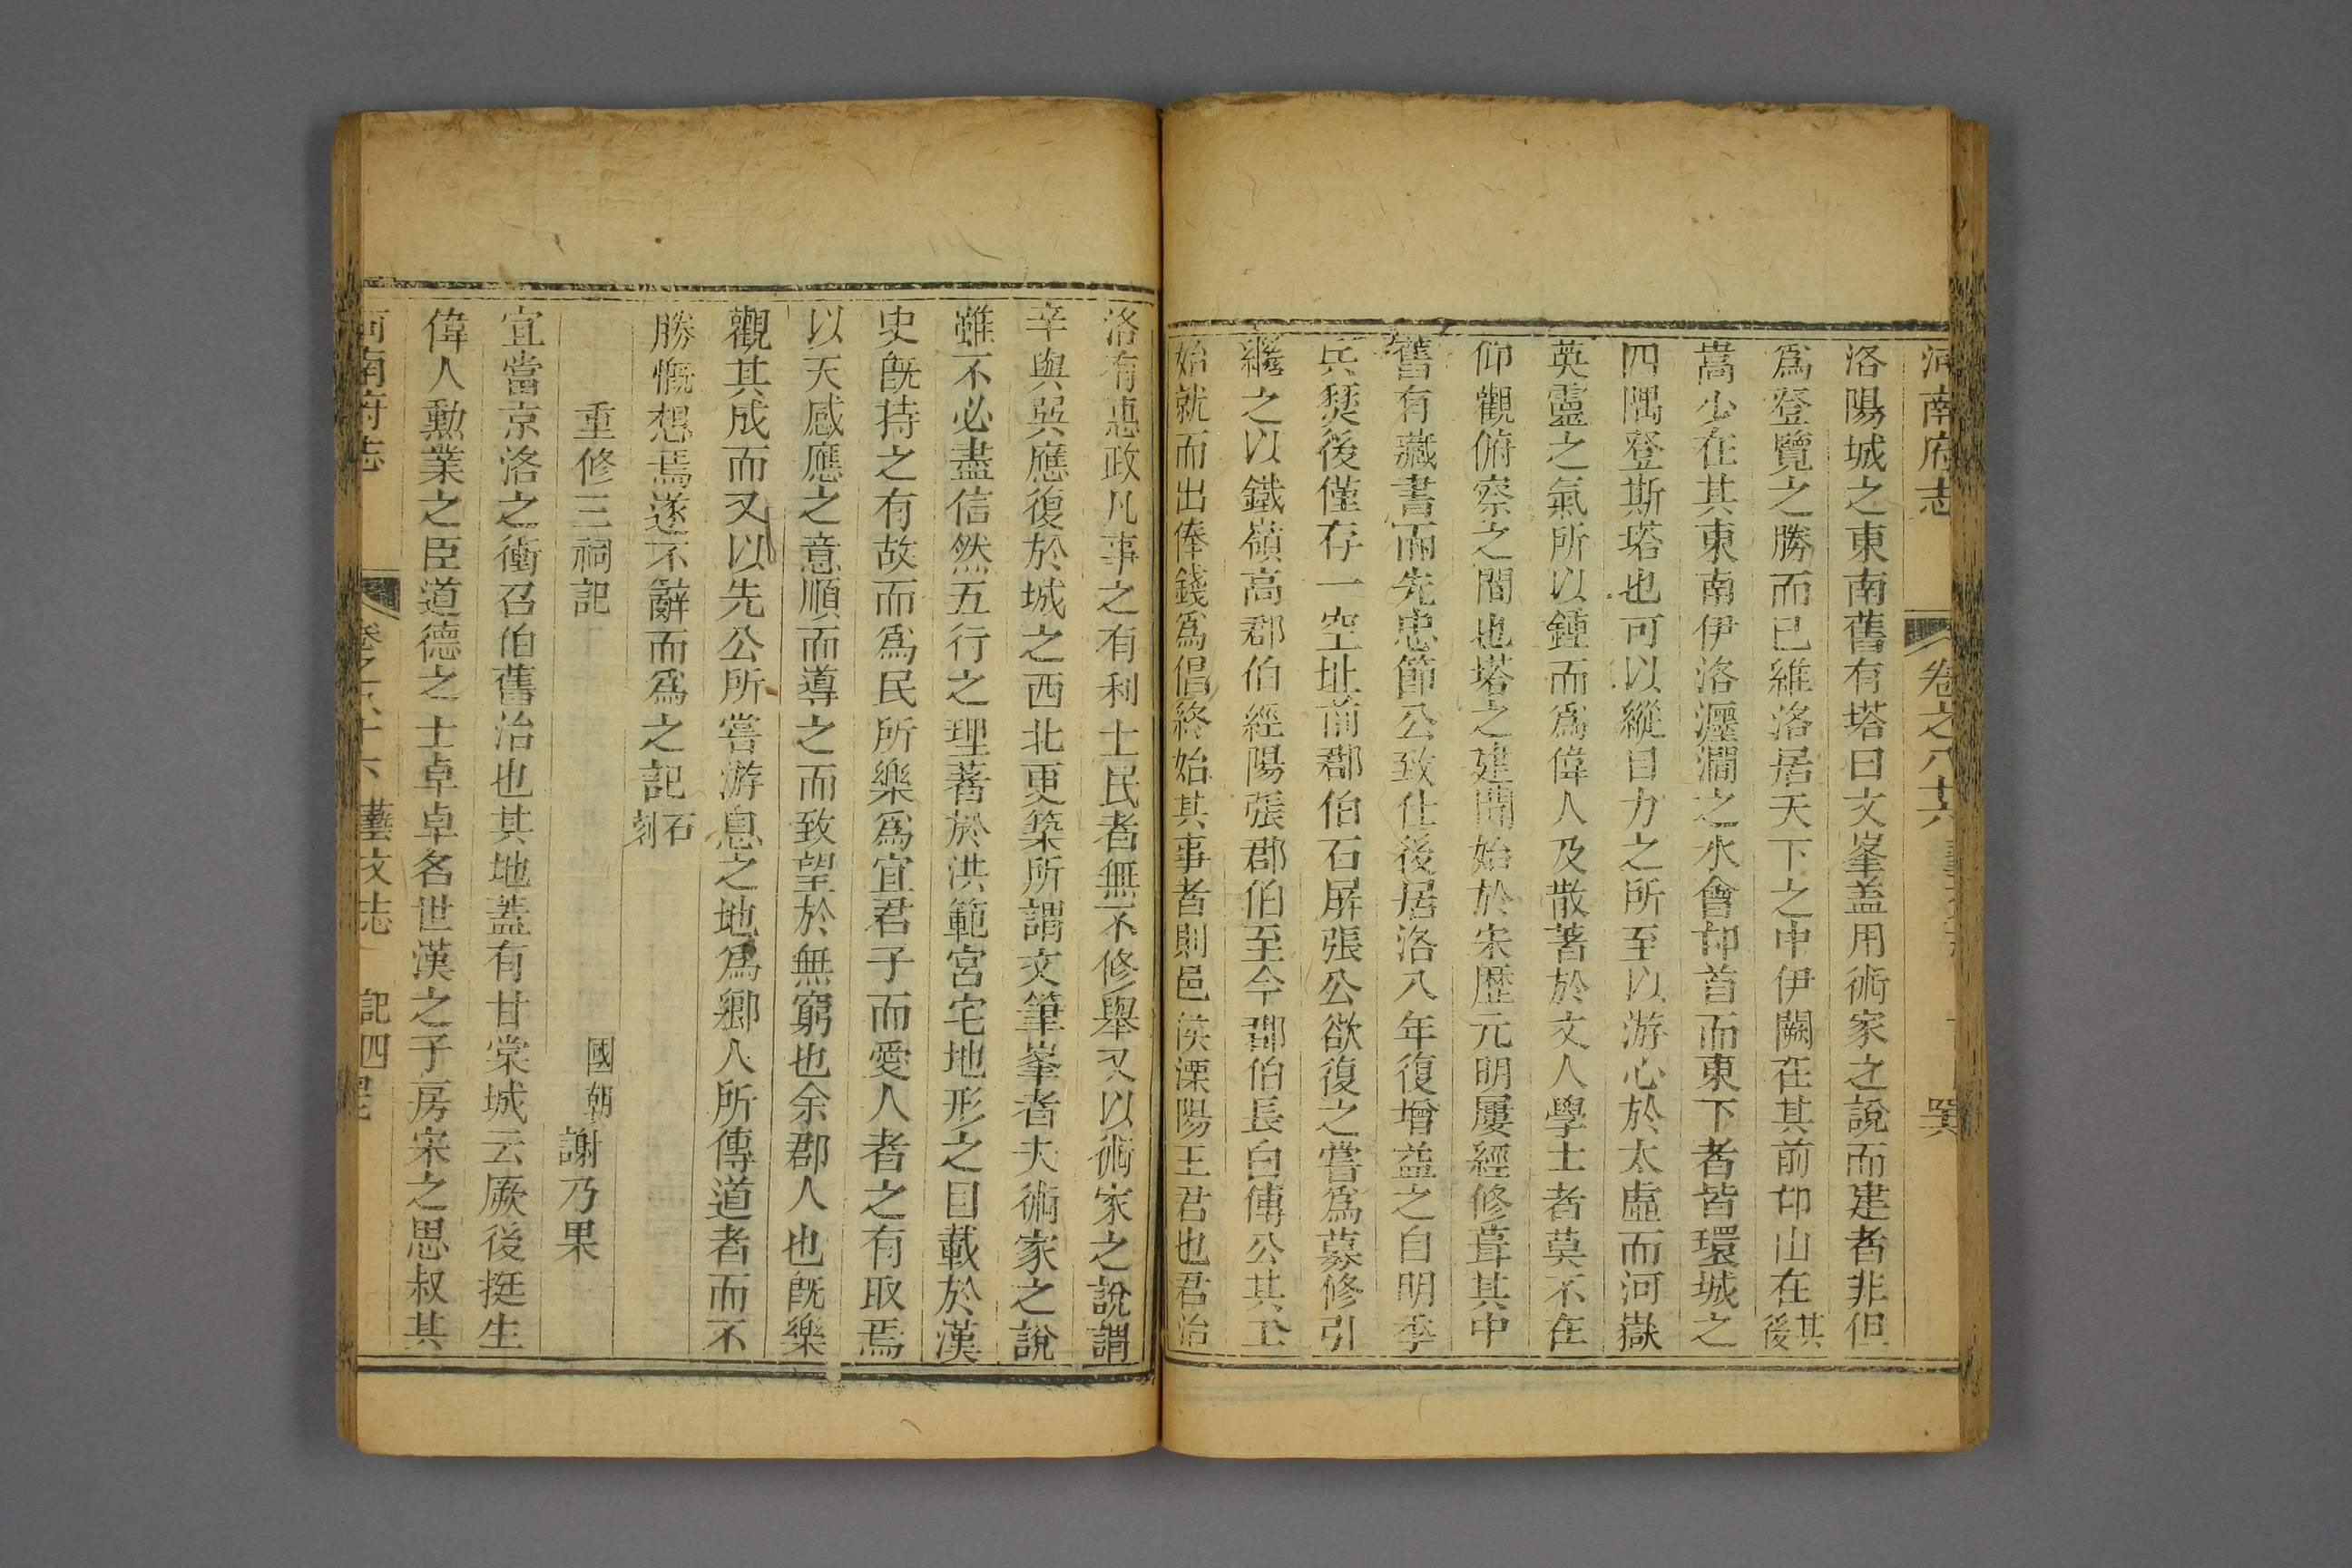 河南府志 卷之八十六 藝文志
洛陽城之東南舊有塔曰文峯盖用術家之說而建者非但
爲登覽之勝而已維洛居天下之中伊闕在其前邙山在其後
嵩少在其東南伊洛瀍澗之水會邙首而東下者皆環城之
四隅登斯塔也可以縱目力之所至以游心於太虛而河嶽
英靈之氣所以鍾而爲偉人及散著於文人學士者莫不在
仰觀俯察之間也塔之建聞始於宋歷元明屢經修葺其中
舊有藏書而先忠節公致仕後居洛八年復增益之自明季
兵燹後僅存一空址前郡伯石屏張公欲復之嘗爲募修引
繼之以鐵嶺高郡伯經陽張郡伯至今郡伯長白傅公其工
始就而出俸錢爲倡終始其事者則邑侯溧陽王君也君治
洛有惠政凡事之有利士民者無不修舉又以術家之說謂
辛與巽應復於城之西北更築所謂文筆峯者夫術家之說
雖不必盡信然五行之理著於洪範宮宅地形之目載於漢
史旣持之有故而爲民所樂爲宜君子而愛人者之有取焉
以天感應之意順而導之而致望於無窮也余郡人也旣樂
觀其成而又以先公所嘗游息之地爲鄉人所傳道者而不
勝慨想焉遂不辭而爲之記石刻
重修三祠記 國朝謝乃果
宜當京洛之衝召伯舊治也其地蓋有甘棠城云厥後挺生
偉人勳業之臣道德之士卓卓名世漢之子房宋之思叔其
河南府志 卷之八十六 藝文志 記四